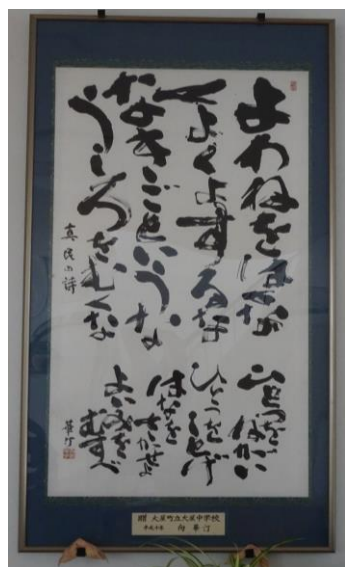 よわねをはくな
くよくよするな
なきごというな
うしろをむくな
ひとつをねがい
ひとつをしとげ
はなをさかせよ
よいみをむすべ
真民の詩
華汀
向 華汀